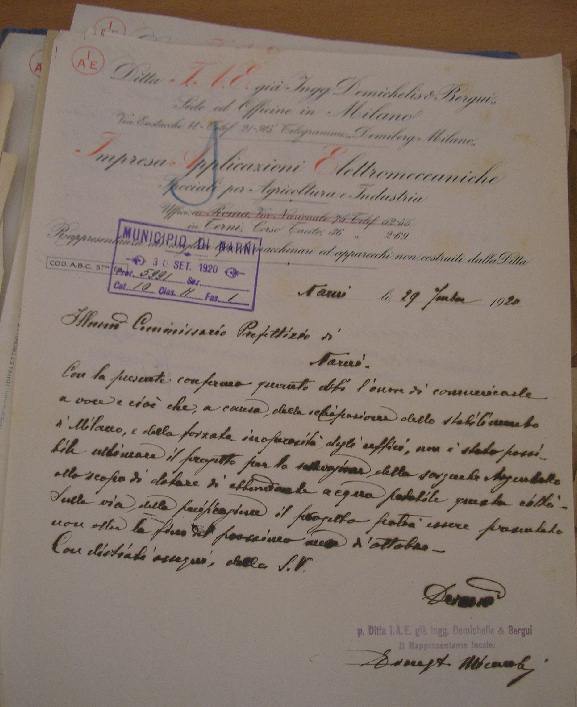 I
A E
Ditta I. A. E. già Ingg. Demichelis & Bergui,
Sede ed Officine in Milano
Via Eustachi 11 - Telef. 21-315 Telegrammi, Demiberg-Milano,
Impresa Applicazioni Elettromeccaniche
Speciali per Agricoltura e Industria
Uffici a Roma, Via Nazionale 75 Telef. 52-55
in Terni, Corso Tacito, 36 " 2-69
Rappresentanze macchinari ed apparecchi non costruiti dalla Ditta
COD. A.B.C. 5TH
MUNICIPIO DI NARNI
30 SET. 1920
Prot. Ser.
Cat. 10 Clas. II Fas. 1
Narni li 29 1920
Illmo Commissario Prefettizio di
Narni.
Con la presente confermo quanto ebbi l'onore di comunicarle
a voce e cioè che, a causa della dello stabilimento
di Milano, e della forzata inoperosità degli uffici, non è stato possi-
bile ultimare il progetto per la della sorgente
allo scopo di dotare di abbondante acqua potabile questa città.-
Sulla via della il progetto potrà essere presentato
non oltre la fine del prossimo mese d'ottobre.-
Con distinti ossequi, della S.V.
p. Ditta I.A.E. già Ingg. Demichelis & Bergui
Il Rappresentante locale: